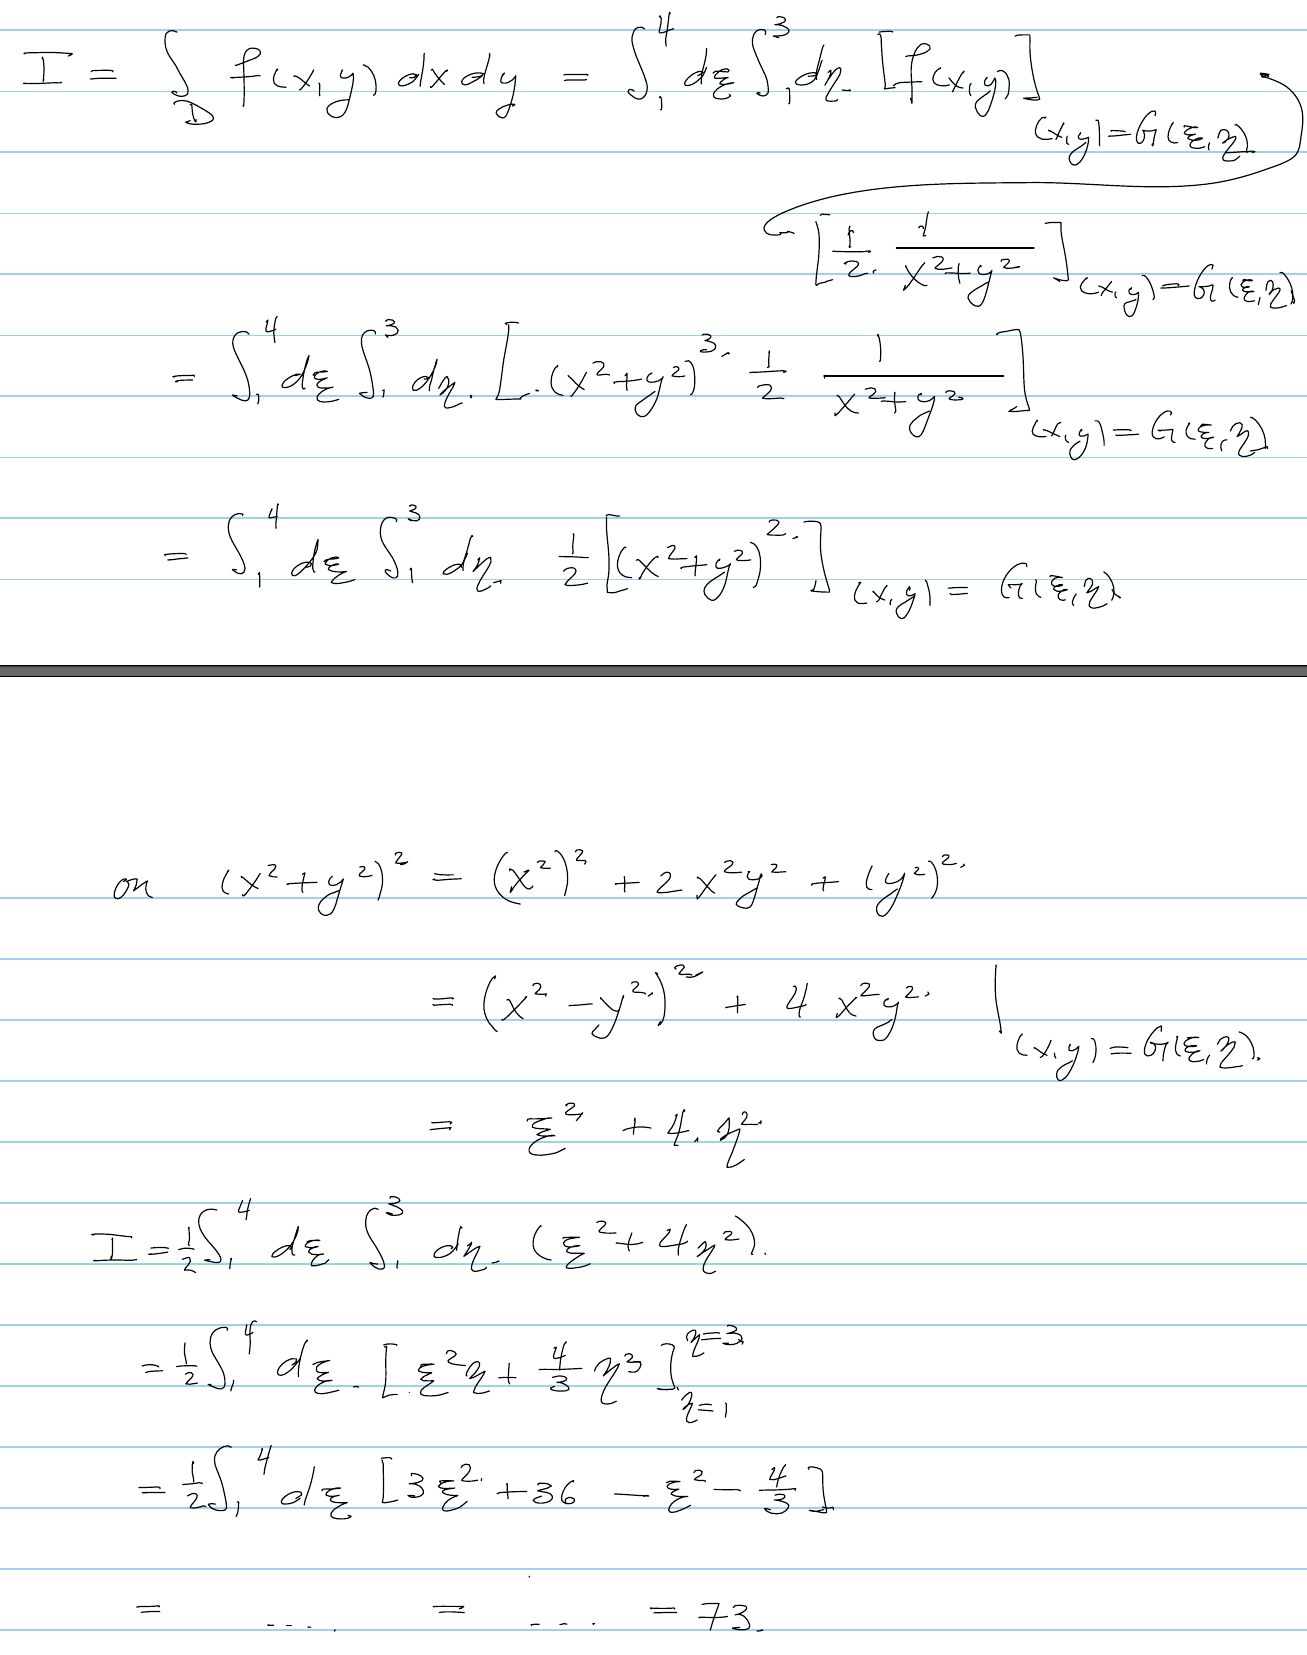 I = ∫_D f(x,y) dx dy = ∫_1^4 dξ ∫_1^3 dη. [f(x,y)]_(x,y)=G(ξ,η)
[1/2. 1/(x²+y²)]_(x,y)=G(ξ,η)
= ∫_1^4 dξ ∫_1^3 dη. [.(x²+y²)^3. 1/2 1/(x²+y²)]_(x,y)=G(ξ,η)
= ∫_1^4 dξ ∫_1^3 dη. 1/2 [(x²+y²)^2.]_(x,y) = G(ξ,η)
on (x²+y²)² = (x²)² + 2 x²y² + (y²)².
= (x² - y².)² + 4 x²y². |_(x,y) = G(ξ,η).
= ξ² + 4. η²
I = 1/2 ∫_1^4 dξ ∫_1^3 dη. (ξ² + 4η²).
= 1/2 ∫_1^4 dξ. [ξ²η + 4/3 η³]_η=1^η=3
= 1/2 ∫_1^4 dξ [3ξ². + 36 - ξ² - 4/3]
= .... = .... = 73.